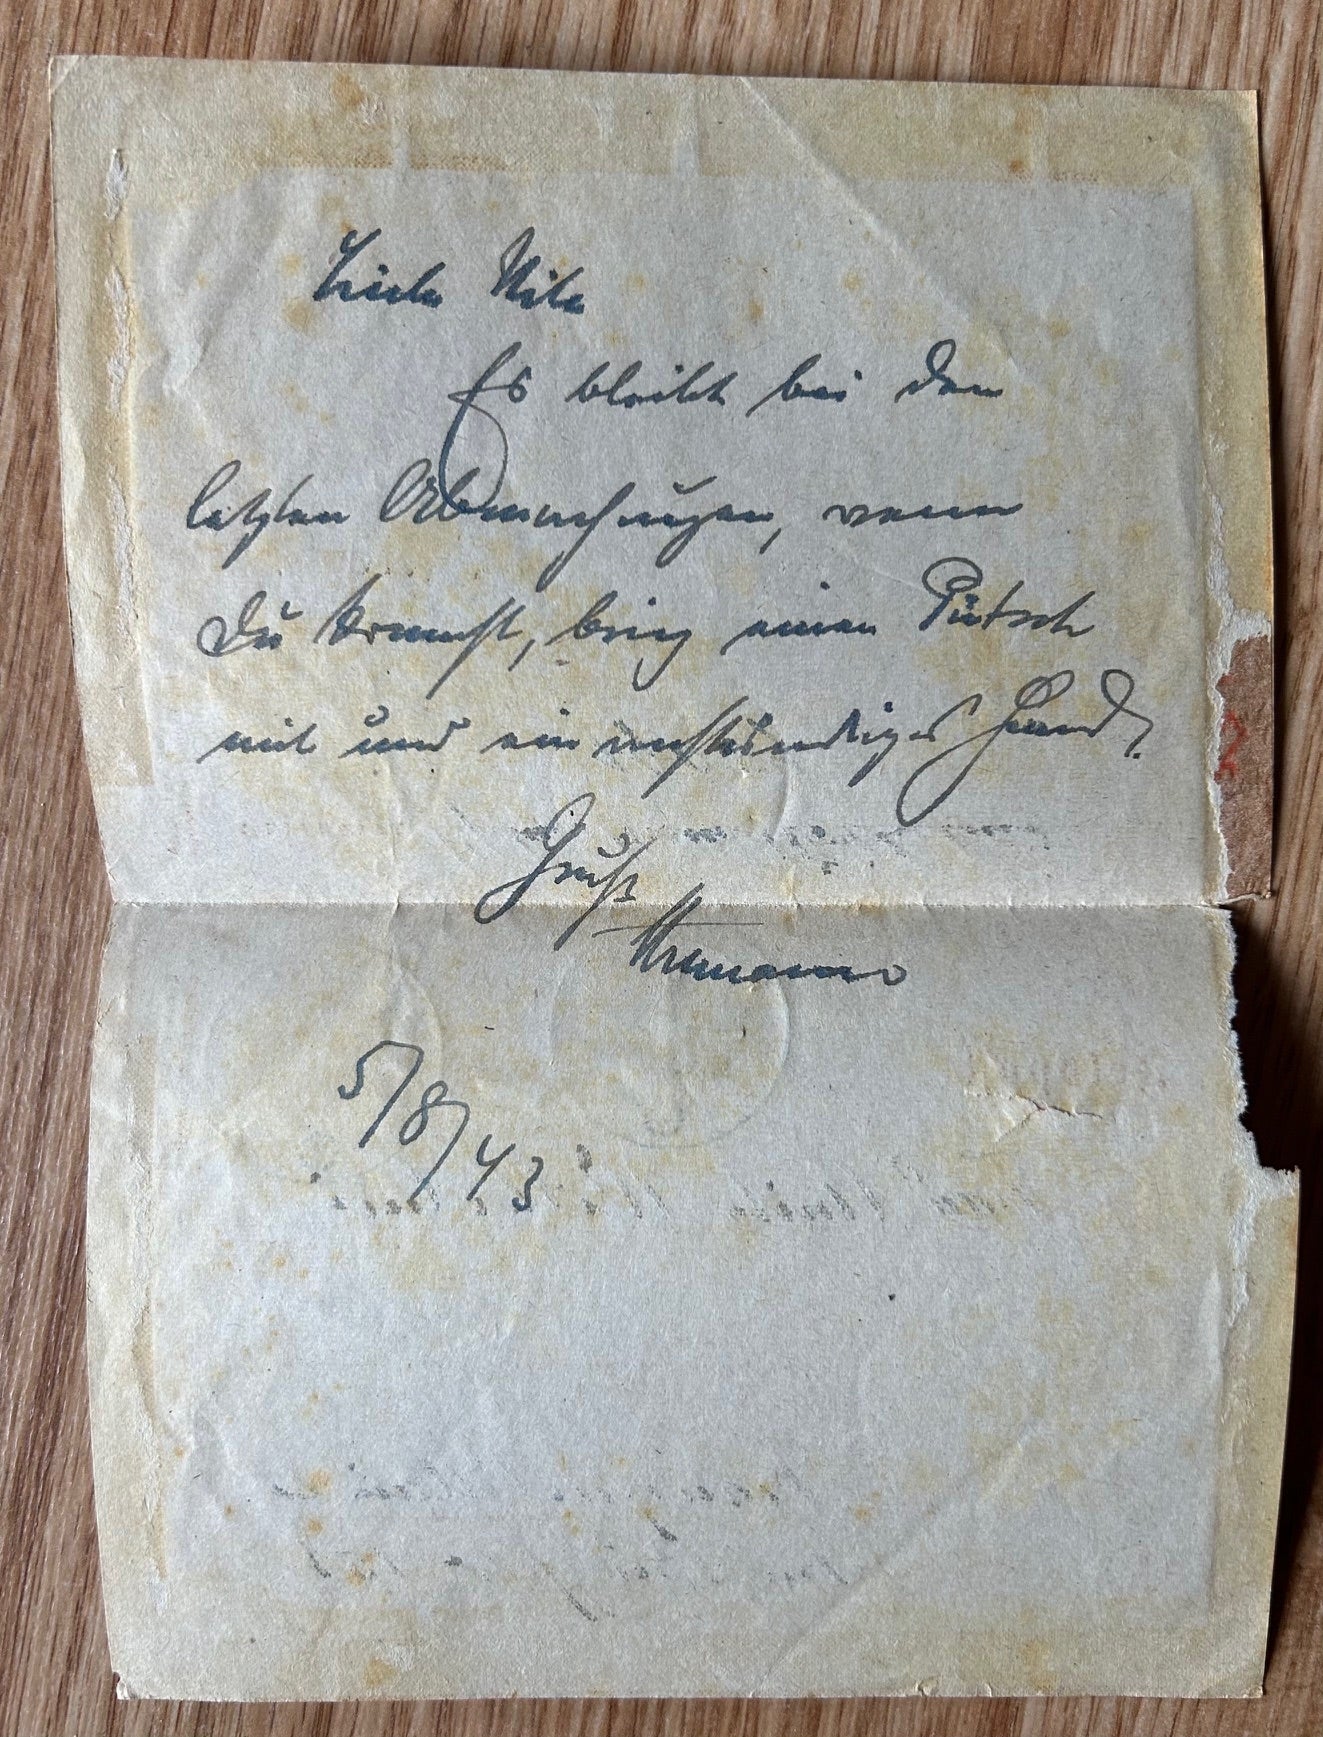 Liebe Mile
Es bleibt bei den
letzten Abmachungen, wenn
Du kommst, bring einen Putsch
mit und ein anständiges Hemd.
Gruß
5/8/43